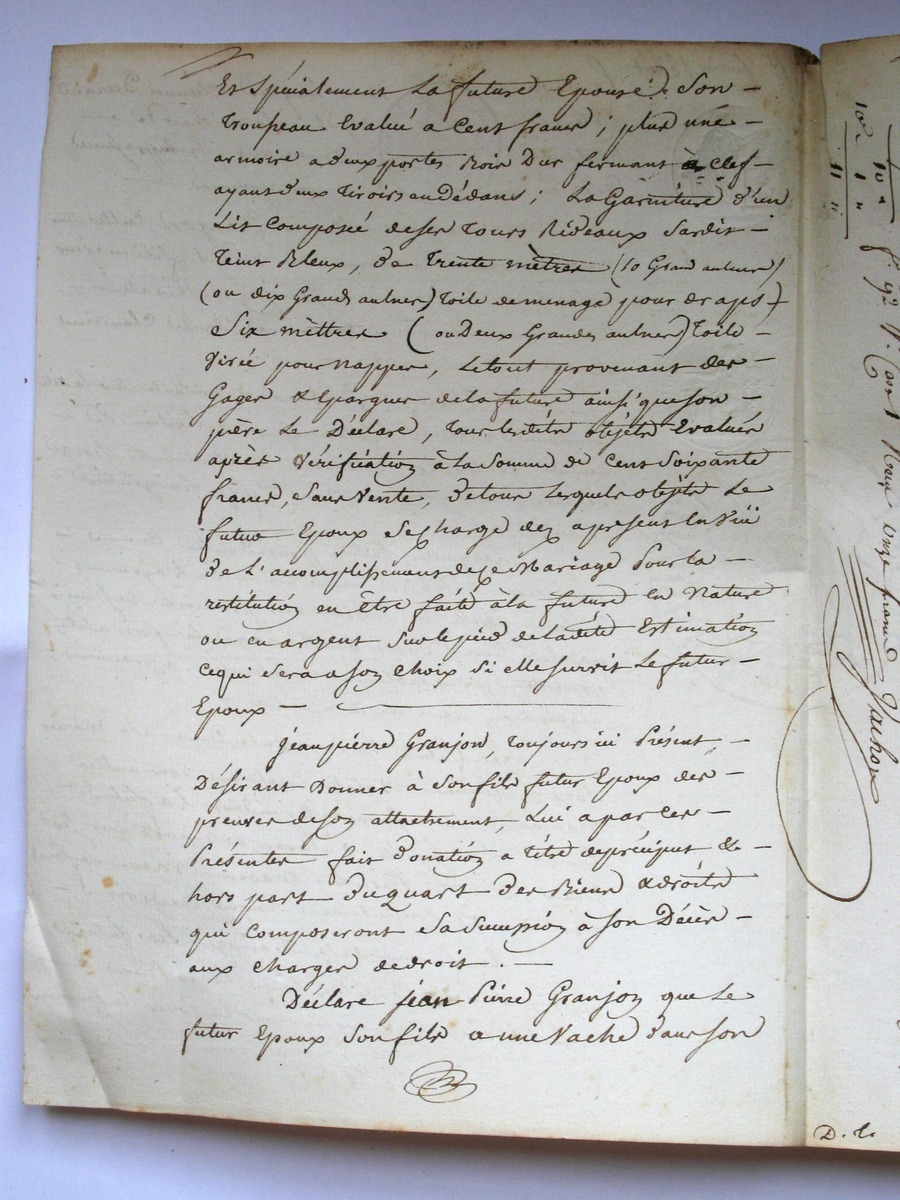 Et spécialement La future Epouse. Son –
Troupeau Evalué a Cent francs ; plus une –
armoire a deux portes Bois Dur fermant à clef –
ayant deux Tiroirs en Dédans ; La Garniture d'un
Lit Composée de ses Tours Rideaux Sardis –
Teint Bleux, de Trente mètres (10 Grand aulnes)
(ou dix Grandes aulnes) Toile de menage pour draps +
Six mèttres (ou Deux Grandes aulnes) Toile –
Virée pour nappes, Le tout provenant des –
Gages & Epargnes de la future ainsi que son –
père Le Déclare, Tous lesdits objets Evalués
après Vérification à la Somme de Cent Soixante
francs, Sans Vente, de tous Lesquels objets Le
futur Epoux se Charge dez apresent En Vüe
de L'accomplissement de Ce Mariage Pour la –
restitution en être faite à la future En Nature
ou en argent Sur le pied de Ladite Estimation
Ce qui Sera a son Choix Si elle survit Le futur –
Epoux –
Jean pierre Granjon, Toujours ici Présent, –
Désirant Donner à Son fils futur Epoux des –
preuves de son attachement, Lui a par Ces –
Présentes fait Donation a Titre de préciput & –
hors part du Quart des Biens & droits
qui Composeront Sa Succession à Son Décès –
aux Charges de droit. –
Déclare jéan Pierre Granjon que Le
futur Epoux Son fils a une Vache dans Son
10
1
11
f. 92 V. Case 1 Reçu onze francs
Vachon
D. L.